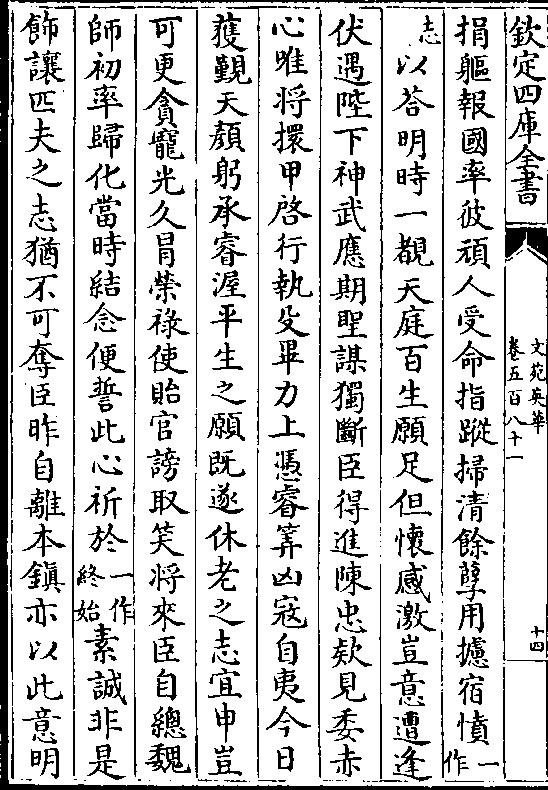 欽定四庫全書
文苑英華
卷五百八十一
十四
捐軀報國率彼頑人受命指蹤掃清餘孽用攄宿憤一作
志以荅明時一覩天庭百生願足但懷感激豈意遭逢
伏遇陛下神武應期聖謀獨斷臣得進陳忠欵見委赤
心唯將擐甲啓行執殳畢力上憑睿筭凶寇自夷今日
獲觀天顔躬承睿渥平生之願既遂休老之志宜申豈
可更貪寵光久冒榮祿使貽官謗取笑將來臣自總魏
師初率歸化當時結念便誓此心祈於一作終始素誠非是
飾讓匹夫之志猶不可奪臣昨自離本鎭亦以此意明